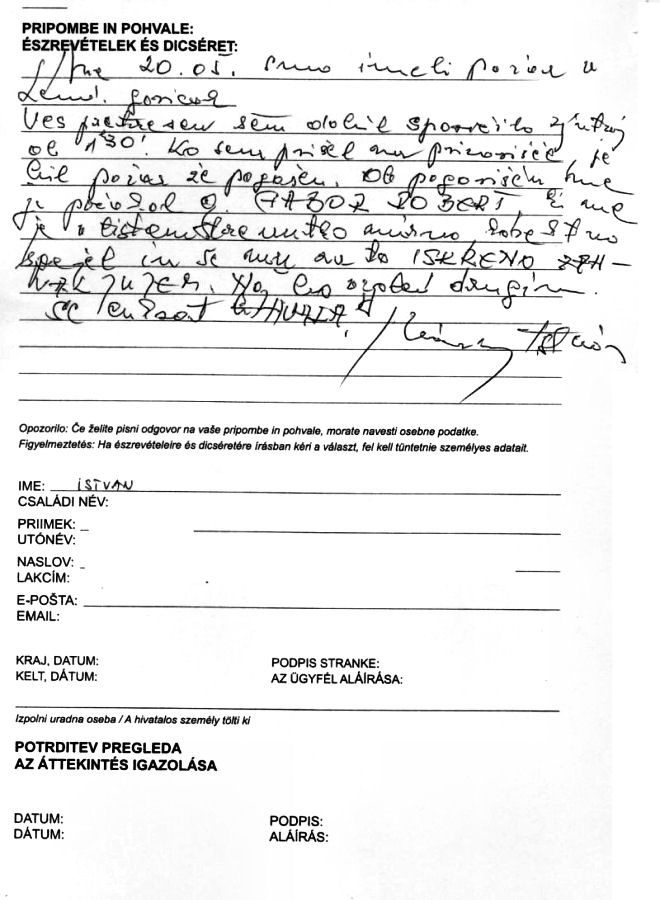 PRIPOMBE IN POHVALE:
ÉSZREVÉTELEK ÉS DICSÉRET:
20.05. smo imeli požar v
Lend. goricah
Ves sem dobil sporočilo zjutraj
ob 1 30'. Ko sem prišel na prizorišče je
bil požar že pogašen. Ob pogorišču me
je počakal g. GABOR ROBERT, ki me
je v tistem trenutku mirno,
in se mu za to ISKRENO ZAH-
VALJUJEM. drugim.
Še enkrat HVALA!
Opozorilo: Če želite pisni odgovor na vaše pripombe in pohvale, morate navesti osebne podatke.
Figyelmeztetés: Ha észrevételeire és dicséretére írásban kéri a választ, fel kell tüntetnie személyes adatait.
IME: ISTVAN
CSALÁDI NÉV:
PRIIMEK:
UTÓNÉV:
NASLOV:
LAKCÍM:
E-POŠTA:
EMAIL:
KRAJ, DATUM: PODPIS STRANKE:
KELT, DÁTUM: AZ ÜGYFÉL ALÁÍRÁSA:
Izpolni uradna oseba / A hivatalos személy tölti ki
POTRDITEV PREGLEDA
AZ ÁTTEKINTÉS IGAZOLÁSA
DATUM: PODPIS:
DÁTUM: ALÁÍRÁS: